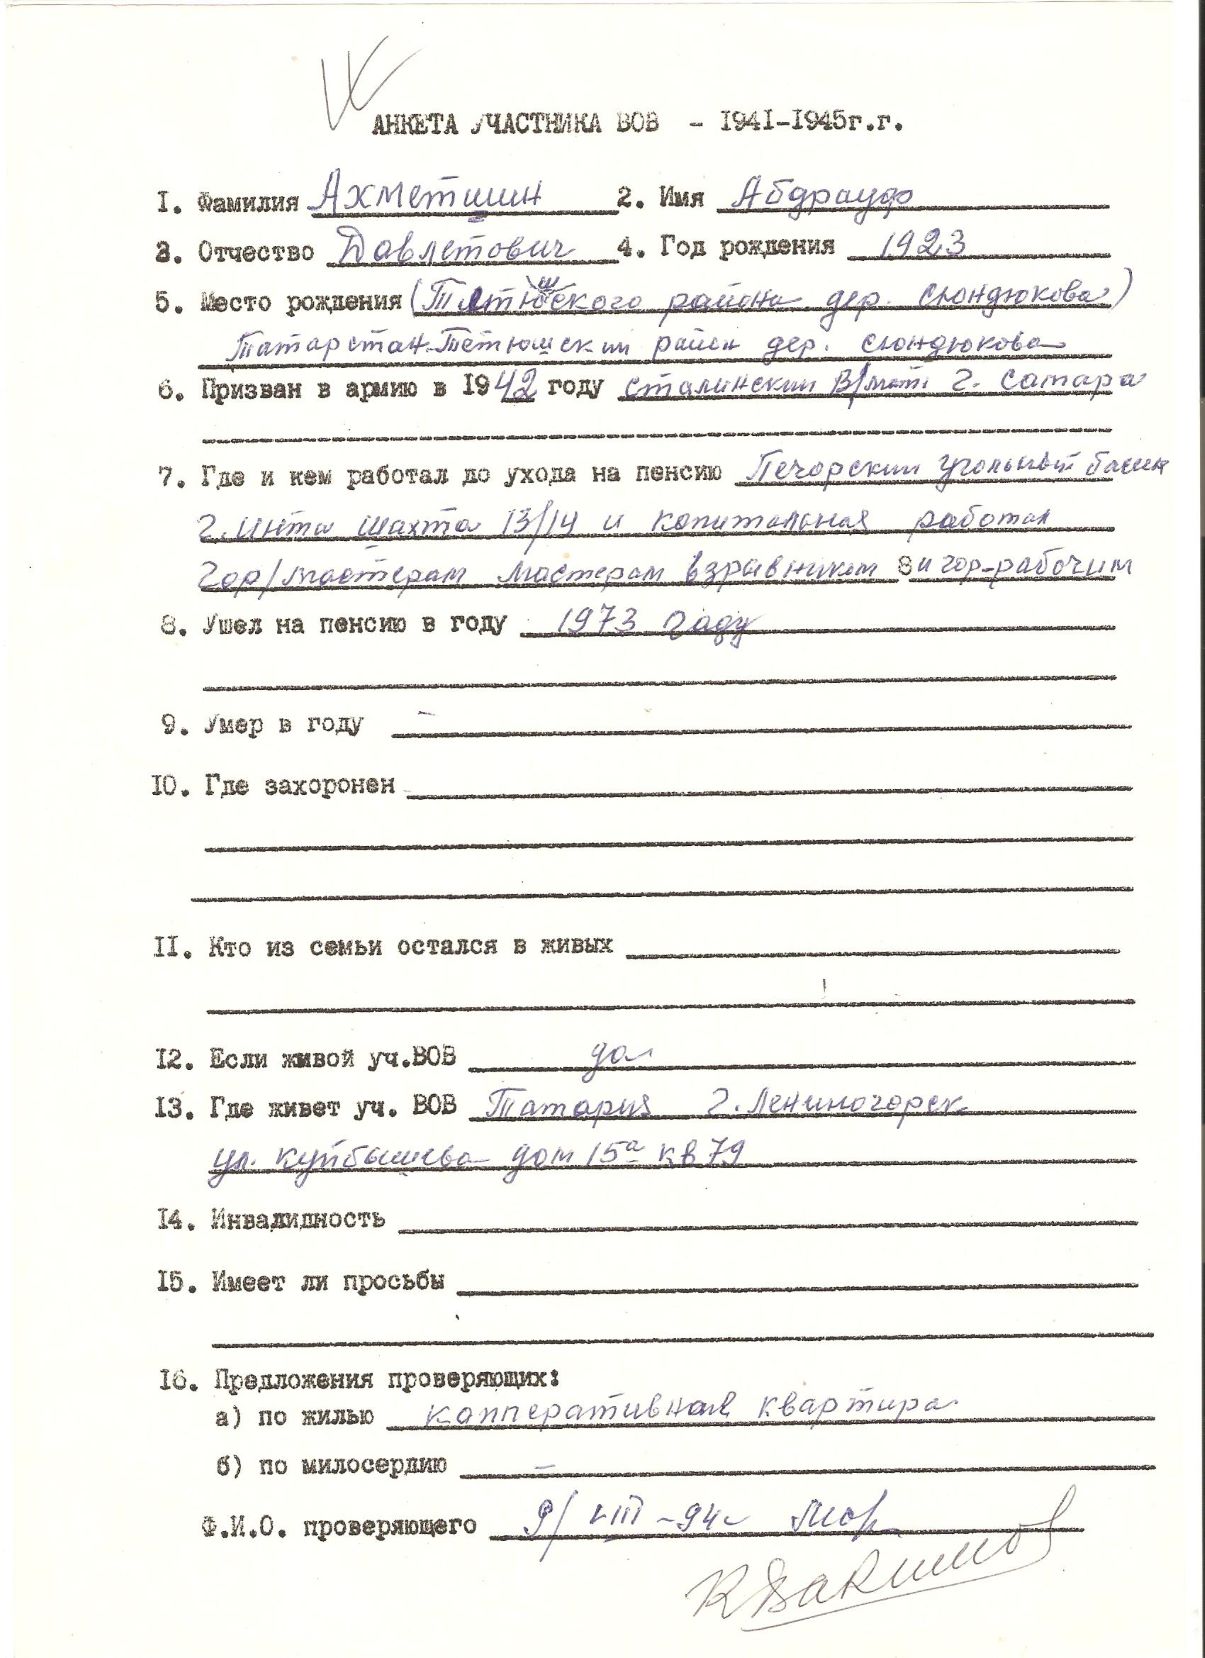 АНКЕТА УЧАСТНИКА ВОВ - 1941-1945г.г.
1. Фамилия Ахметшин 2. Имя Абдрауф
3. Отчество Давлетович 4. Год рождения 1923
5. Место рождения (Тетюшского района дер. Сюндюкова)
Татарстан Тетюшский район дер. Сюндюкова
6. Призван в армию в 1942 году Сталинский В/мат г. Самара
7. Где и кем работал до ухода на пенсию Печорский угольный басин
г. Инта шахта 13/14 и капитальная работал
Гор/мастерам мастерам взравником и гор-рабочим
8. Ушел на пенсию в году 1973 году
9. Умер в году -
10. Где захоронен
11. Кто из семьи остался в живых
12. Если живой уч.ВОВ да
13. Где живет уч. ВОВ Татария г. Лениногорск
ул. Куйбышева дом 15а кв 79
14. Инвалидность
15. Имеет ли просьбы
16. Предложения проверяющих:
а) по жилью кооперативная квартира
б) по милосердию -
Ф.И.О. проверяющего 9/VIII-94г